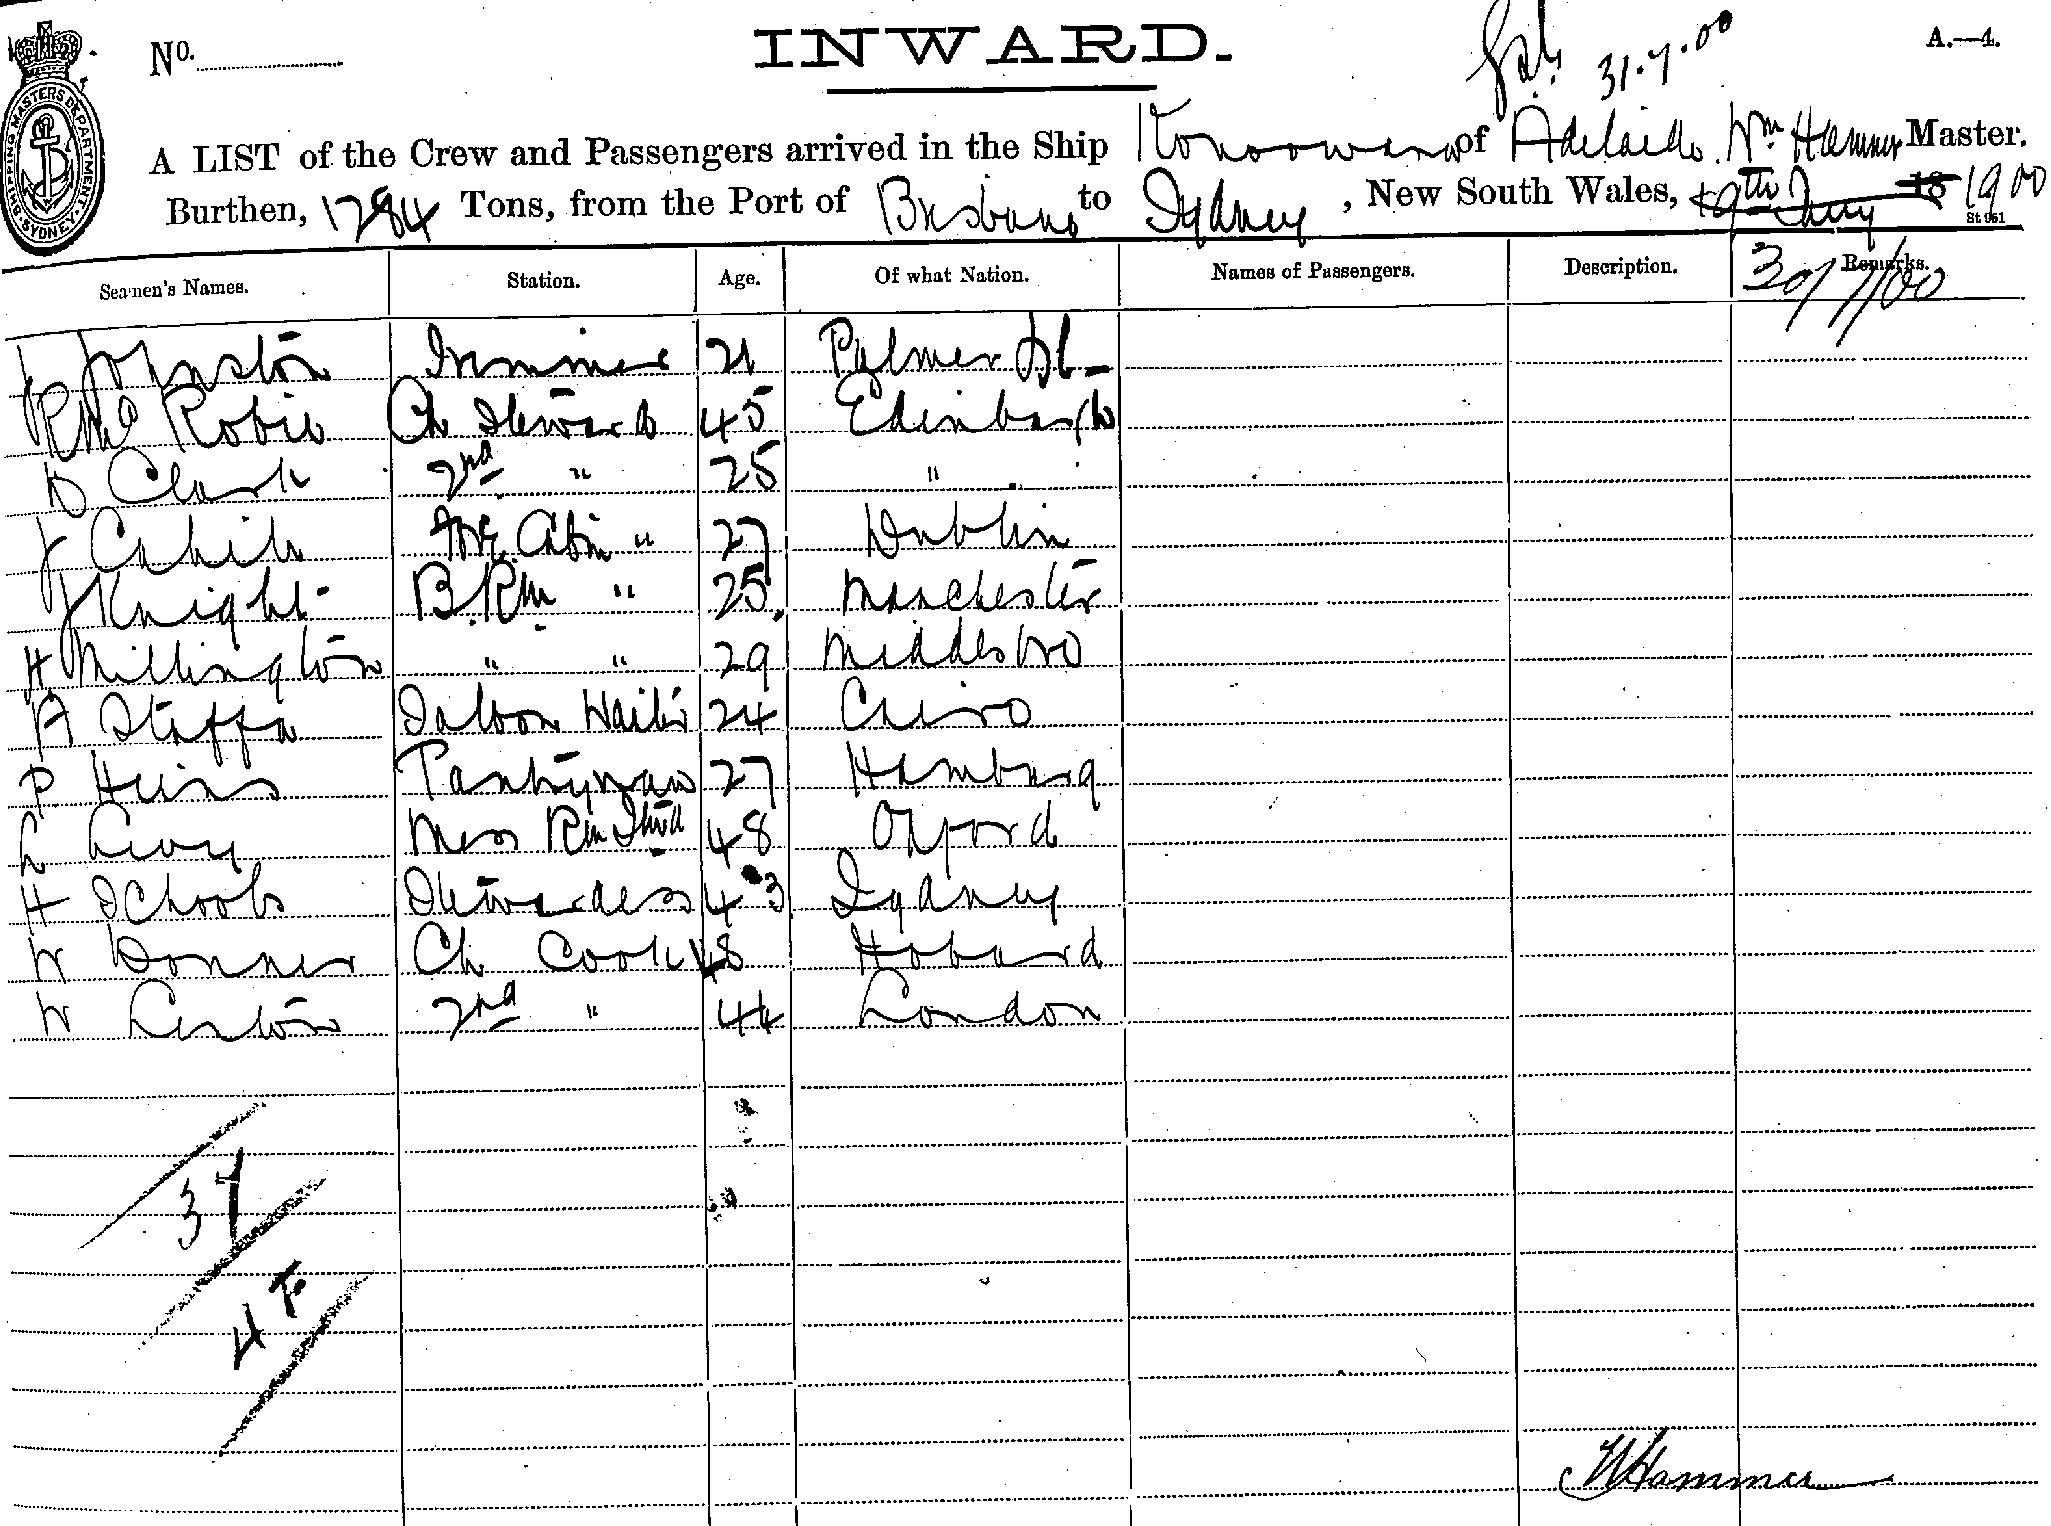 No.
INWARD.
31.7.00
A.—4.
SHIPPING MASTERS DEPARTMENT. SYDNEY.
A LIST of the Crew and Passengers arrived in the Ship Konoowarra of Adelaide, Wm Hammer Master.
Burthen, 1784 Tons, from the Port of Brisbane to Sydney, New South Wales, 19th July 18 1900
St 961
Seamen's Names. Station. Age. Of what Nation. Names of Passengers. Description. Remarks.
30/7/00
Johnston Trimmer 21 Palmer Isl
Robie Ch Steward 45 Edinburgh
D Clark 2nd " 25 "
J Cahill Fore Cabin " 27 Dublin
J Knight B. Rm " 25 Manchester
H Millington " " 29 Middlesbro
A Staffa Saloon Waiter 24 Cairo
P Heins Pantryman 27 Hamburg
L Levy Mess Rm Stwd 48 Oxford
H Schoobs Stewardess 43 Sydney
W Donner Ch Cook 48 Hobard
W Lenton 2nd " 44 London
37
4 F
W Hammer